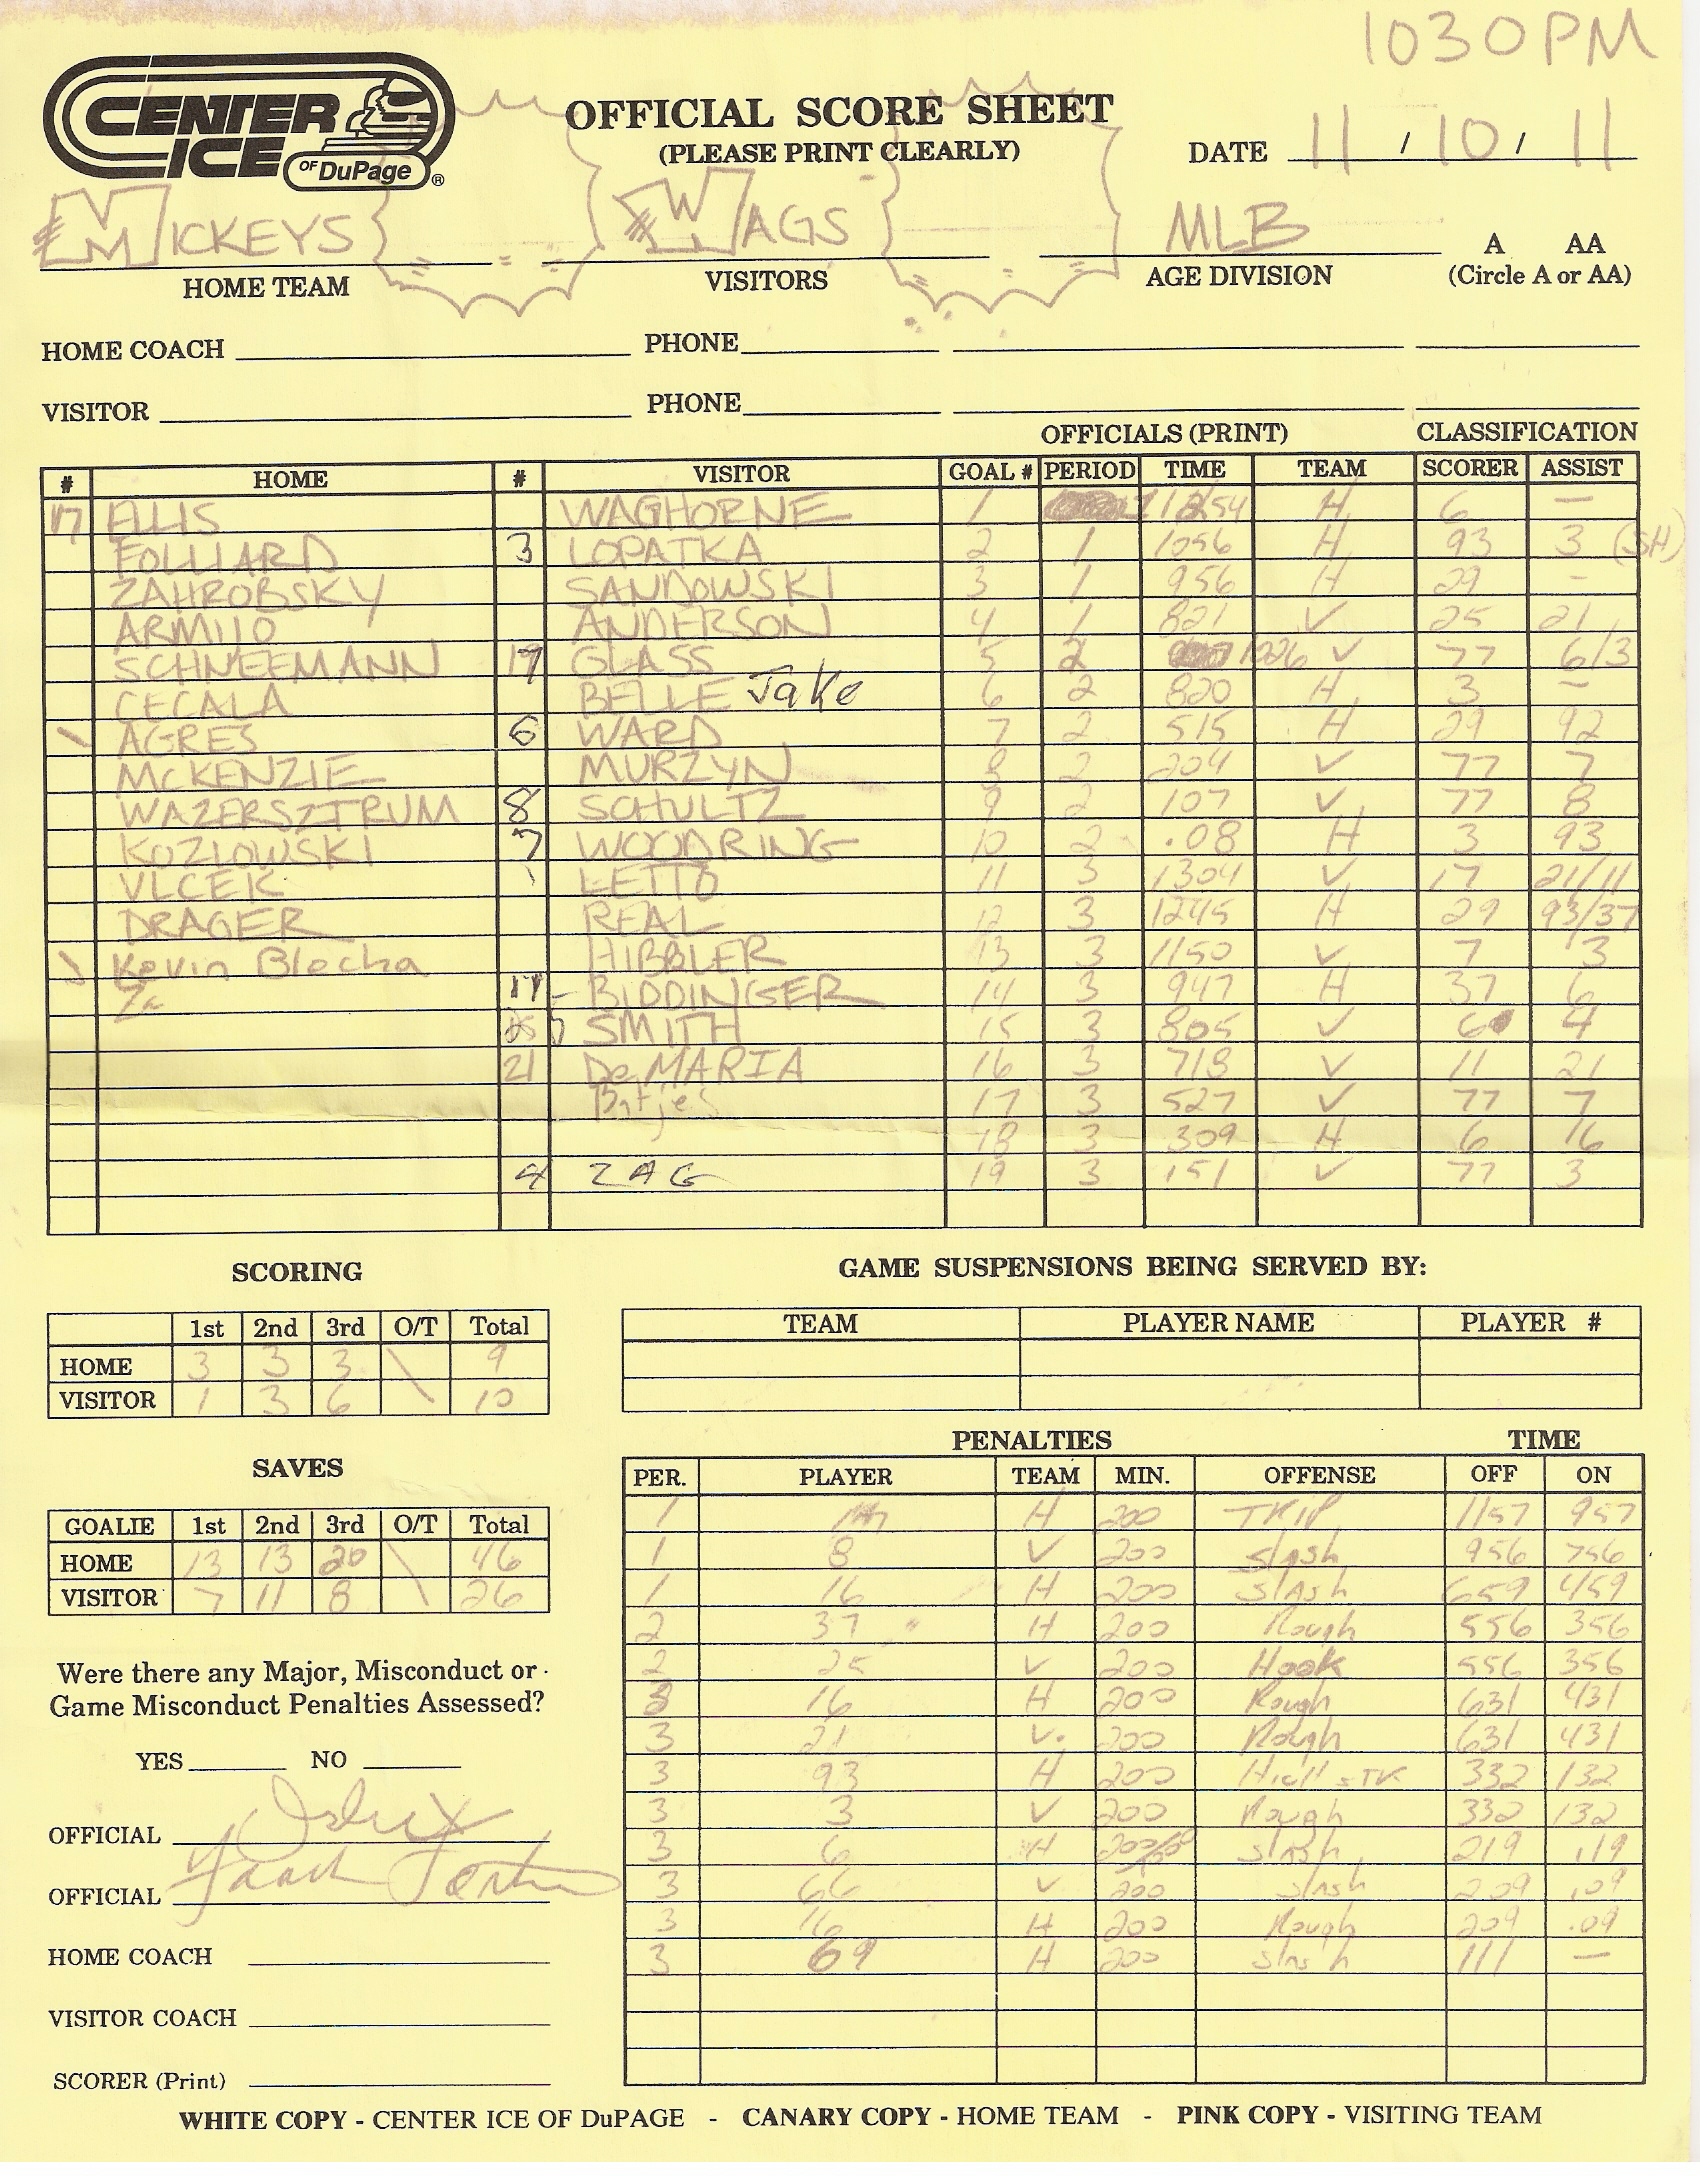 1030PM
CENTER ICE OF DuPage ®
OFFICIAL SCORE SHEET
(PLEASE PRINT CLEARLY)
DATE 11 / 10 / 11
MICKEYS WAGS MLB A AA
HOME TEAM VISITORS AGE DIVISION (Circle A or AA)
HOME COACH PHONE
VISITOR PHONE
OFFICIALS (PRINT) CLASSIFICATION
# HOME # VISITOR GOAL # PERIOD TIME TEAM SCORER ASSIST
17 ELLIS WAGHORNE 1 1254 H 6 —
FOLLIARD 3 LOPATKA 2 1 1056 H 93 3 (SH)
ZAHROBSKY SANDOWSKI 3 1 956 H 29 -
ARMIJO ANDERSON 4 1 821 V 25 21
SCHNEEMANN 19 GLASS 5 2 1026 V 77 6/3
CECALA BELLE Jake 6 2 820 H 3 —
\ AGRES 6 WARD 7 2 515 H 29 92
MCKENZIE MURZYN 8 2 204 V 77 7
WAZERSZTRUM 8 SCHULTZ 9 2 107 V 77 8
KOZLOWSKI 7 WOODRING 10 2 .08 H 3 93
VLCEK \ LETTO 11 3 1304 V 17 21/11
DRAGER REAL 12 3 1245 H 29 93/37
\ Kevin Blecha HIBBLER 13 3 1150 V 7 3
17 - BIDDINGER 14 3 947 H 37 6
SMITH 15 3 805 V 6 4
21 DeMARIA 16 3 718 V 11 21
Batjes 17 3 527 V 77 7
18 3 309 H 6 16
4 ZAG 19 3 151 V 77 3
SCORING GAME SUSPENSIONS BEING SERVED BY:
1st 2nd 3rd O/T Total TEAM PLAYER NAME PLAYER #
HOME 3 3 3 \ 9
VISITOR 1 3 6 \ 10
PENALTIES TIME
SAVES PER. PLAYER TEAM MIN. OFFENSE OFF ON
GOALIE 1st 2nd 3rd O/T Total
HOME 13 13 20 \ 46
VISITOR 7 11 8 \ 26
1 H 200 TRIP 1157 957
1 8 V 200 Slash 956 756
1 16 H 200 SLASh 659 459
2 37 H 200 Rough 556 356
2 25 V 200 Hook 556 356
3 16 H 200 Rough 631 431
3 21 V. 200 Rough 631 431
3 93 H 200 332 132
3 3 V 200 Rough 332 132
3 6 H Slash 219 .19
3 66 V 200 Slash 209 .09
3 16 H 200 Rough 209 .09
3 69 H 200 Slash 111 —
Were there any Major, Misconduct or
Game Misconduct Penalties Assessed?
YES NO
OFFICIAL
OFFICIAL
HOME COACH
VISITOR COACH
SCORER (Print)
WHITE COPY - CENTER ICE OF DuPAGE - CANARY COPY - HOME TEAM - PINK COPY - VISITING TEAM